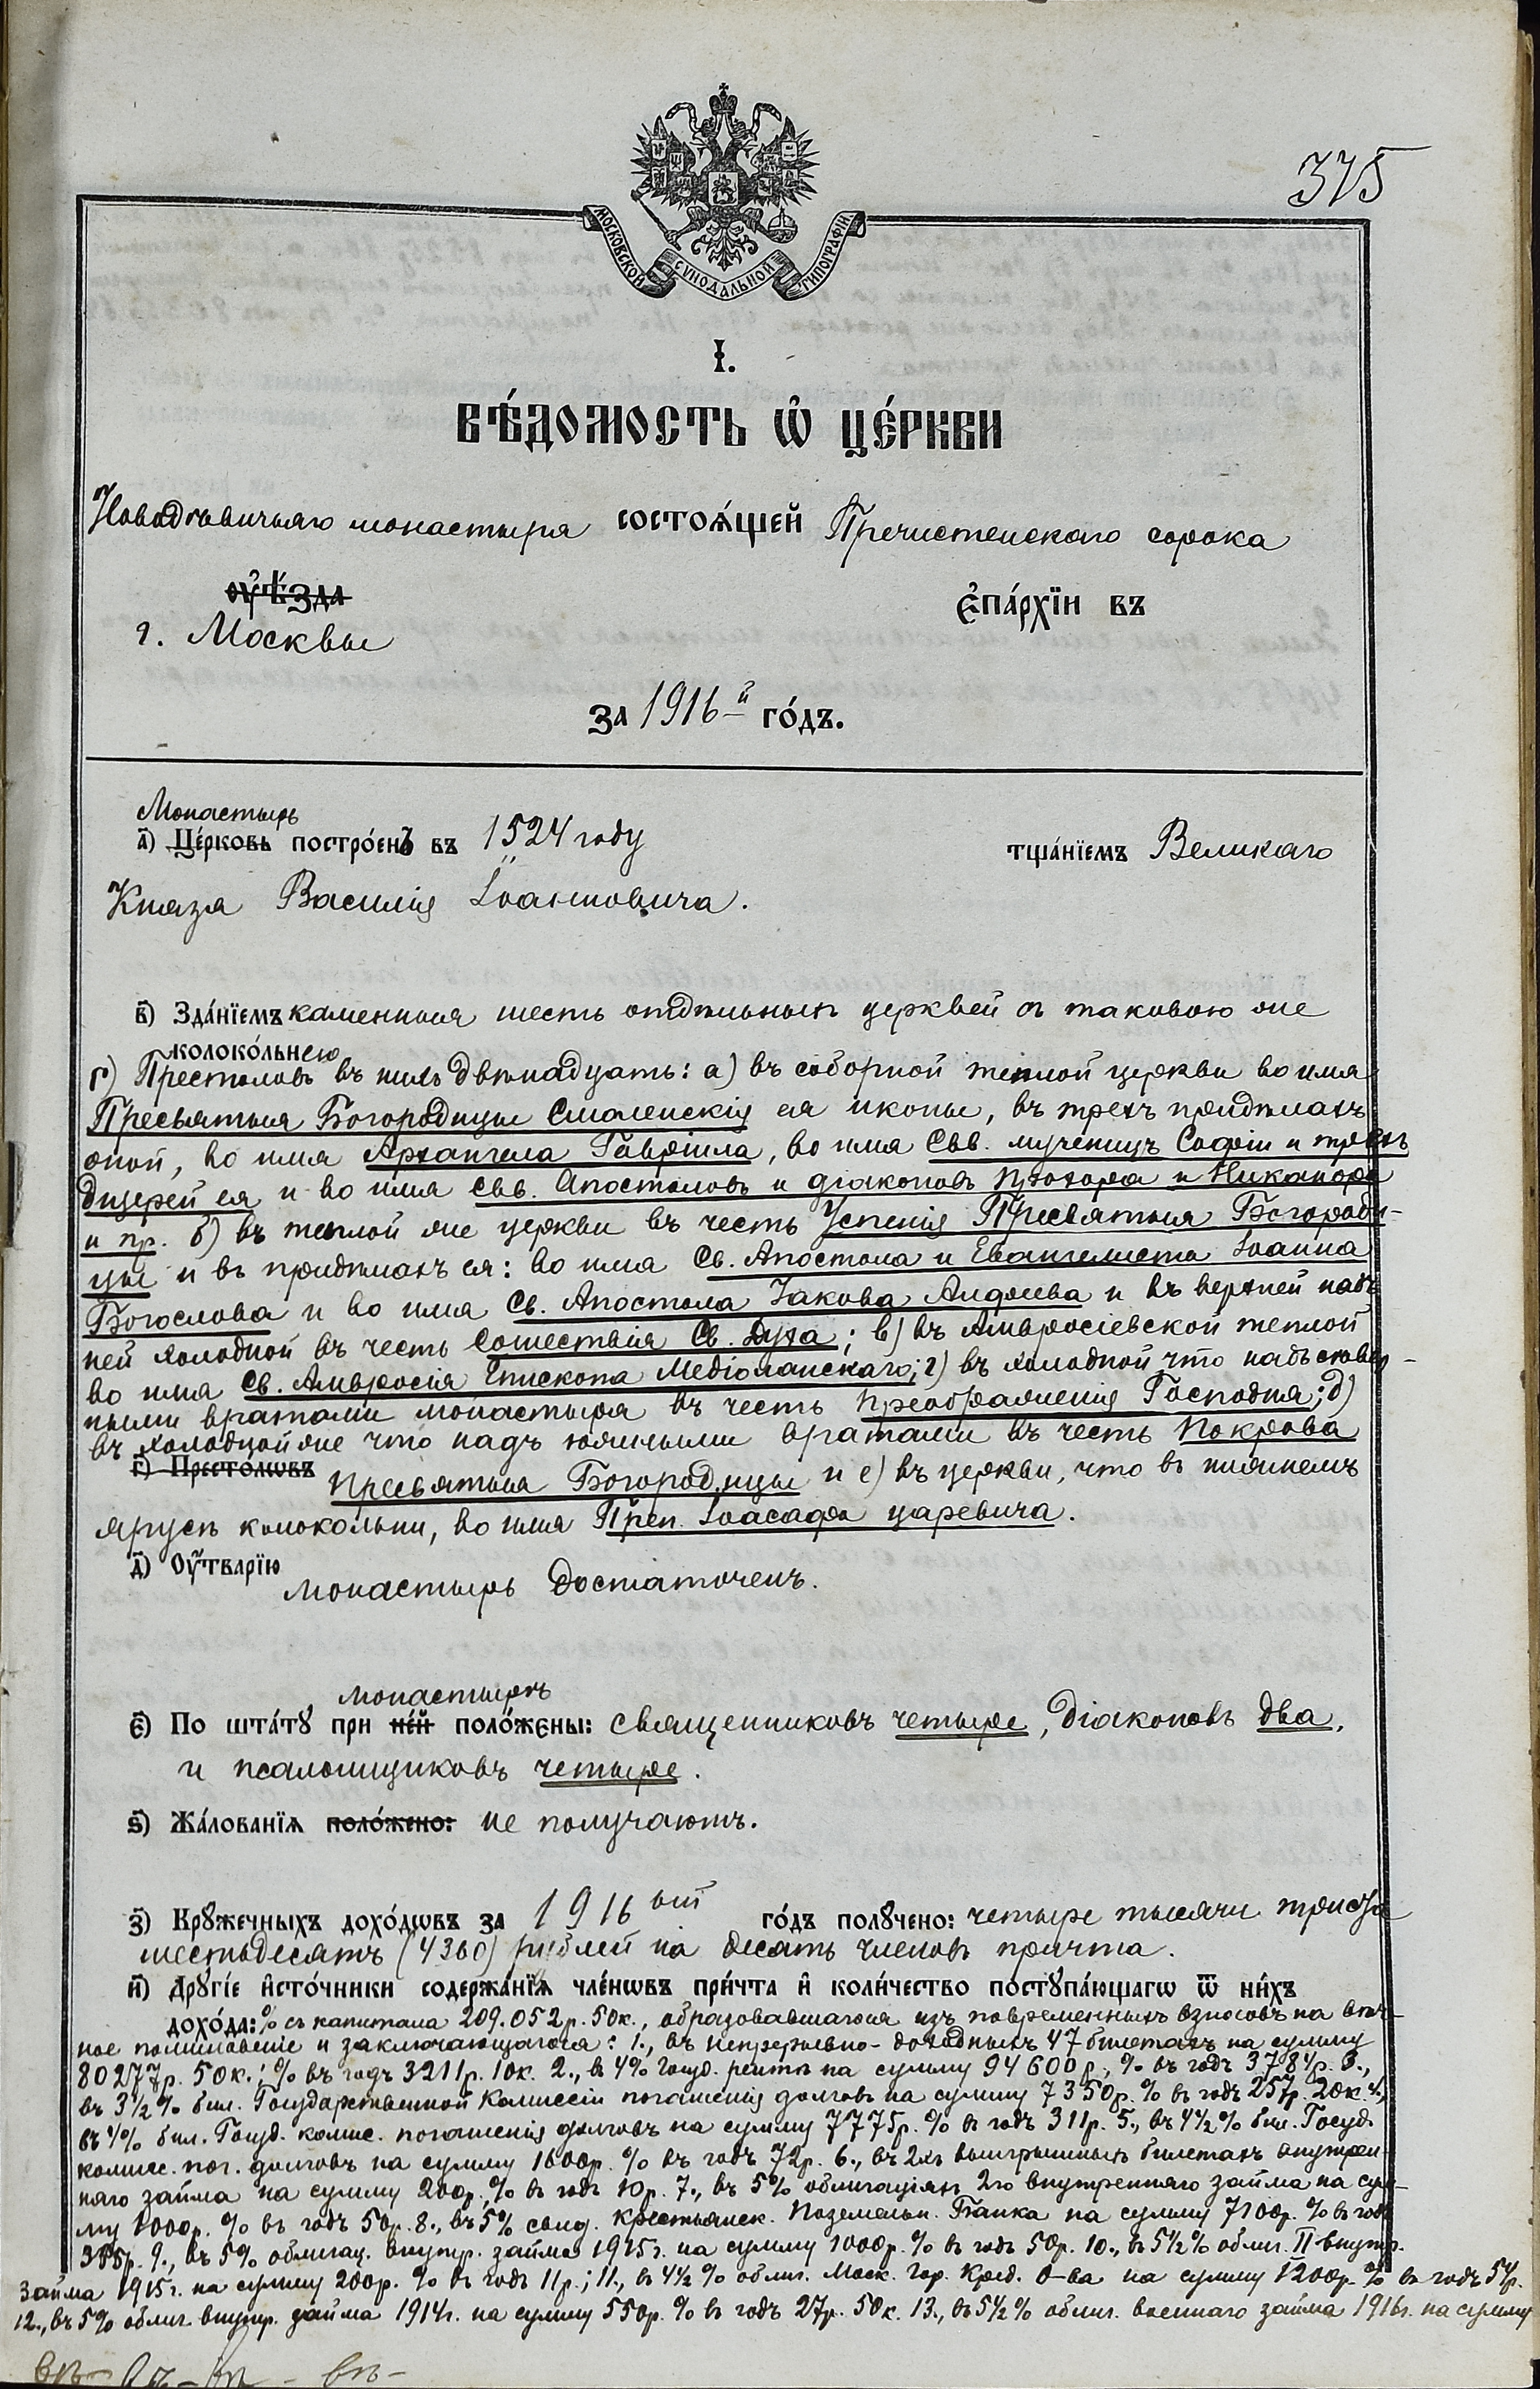 375
МОСКОВСКОЙ СѴНОДАЛЬНОЙ ТИПОГРАФІИ.
І.
ВѢ́ДОМОСТЬ Ѡ҆ ЦЕ́РКВИ
Новодѣвичьяго монастыря состоѧ́щей Пречистенскаго сорока
ᲂу҆ѣ́зда є҆па́рхїи въ
г. Москвы
за 1916-й го́дъ.
Монастырь
а҃) Це́рковь постро́енъ въ 1524 году тща́нїемъ Великаго
Князя Василія Іоанновича.
в҃) Зда́нїемъ каменныя шесть отдѣльныхъ церквей съ таковою же
колоко́льнею
г) Престоловъ въ нихъ двѣнадцать: а) въ соборной теплой церкви во имя
Пресвятыя Богородицы Смоленскія ея иконы, въ трехъ придѣлахъ
оной, во имя Архангела Гавріила, во имя Свв. мученицъ Софіи и трехъ
дщерей ея и во имя Свв. Апостоловъ и діаконовъ Прохора и Никанора
и пр. б) въ теплой же церкви въ честь Успенія Пресвятыя Богороди-
цы и въ придѣлахъ ея: во имя Св. Апостола и Евангелиста Іоанна
Богослова и во имя Св. Апостола Іакова Алфеева и въ верхней надъ
ней холодной въ честь Сошествія Св. Духа; в) въ Амвросіевской теплой
во имя Св. Амвросія Епископа Медіоланскаго; г) въ холодной что надъ сѣвер-
ными вратами монастыря въ честь Преображенія Господня; д)
въ холодной же что надъ южными вратами въ честь Покрова
г҃) Престо́лѡвъ Пресвятыя Богородицы и е) въ церкви, что въ нижнемъ
ярусѣ колокольни, во имя Преп. Іоасафа царевича.
д҃) Оу҆́тварїю монастырь достаточенъ.
монастырѣ
є҃) По шта́тꙋ при не́й поло́жены: священниковъ четыре, діаконовъ два,
и псаломщиковъ четыре.
ѕ҃) Жа́лованїѧ поло́жено: не получаютъ.
з҃) Крꙋ́жечныхъ дохо́дѡвъ за 1916 ый го́дъ полꙋ́чено: четыре тысячи триста
шестьдесятъ (4360) рублей на десять членовъ причта.
и҃) Дрꙋгі́е и҆сто́чники содержа́нїѧ чле́нѡвъ при́чта и҆ коли́чество постꙋпа́ющагѡ ѿ ни́хъ
дохо́да: % съ капитала 209.052 р. 50 к., образовавшагося изъ повременныхъ взносовъ на вѣч-
ное поминовеніе и заключающагося: 1., въ непрерывно-доходныхъ 47 билетахъ на сумму
80277 р. 50 к.; % въ годъ 3211 р. 10 к. 2., въ 4% Госуд. рентѣ на сумму 94600 р., % въ годъ 3784 р. 3.,
въ 3½ % бил. Государственной Комиссіи погашенія долговъ на сумму 7350 р. % въ годъ 257 р. 20 к 4.,
въ 4% бил. Госуд. комис. погашенія долговъ на сумму 7775 р. % въ годъ 311 р. 5., въ 4½ % бил. Госуд.
комис. пог. долговъ на сумму 1600 р. % въ годъ 72 р. 6., въ 2хъ выигрышныхъ билетахъ внутрен-
няго займа на сумму 200 р. % въ годъ 10 р. 7., въ 5% облигаціяхъ 2го внутренняго займа на сум-
му 1000 р. % въ годъ 50 р. 8., въ 5% свид. Крестьянск. Поземельн. Банка на сумму 7100 р. % въ годъ
355 р. 9., въ 5% облигац. внутр. займа 1915 г. на сумму 1000 р. % въ годъ 50 р. 10., въ 5½ % облиг. II внутр.
займа 1915 г. на сумму 200 р. % въ годъ 11 р.; 11., въ 4½ % облиг. Моск. Гор. Кред. О-ва на сумму 1200 р. % въ годъ 54 р.
12., въ 5% облиг. внутр. займа 1914 г. на сумму 550 р. % въ годъ 27 р. 50 к. 13., въ 5½ % облиг. военнаго займа 1916 г. на сумму